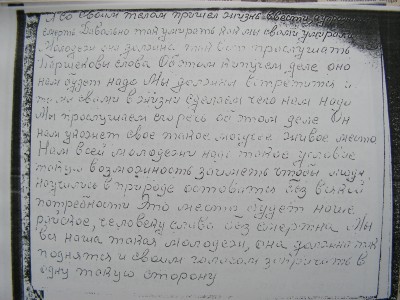 Я со своим телом пришел жизнь ввести
смерть Довольно так умирать как мы с вами умирали
Молодежь она должна так вот прослушать
Паршекова слова Об этом кипучем деле оно
нам будет надо Мы должны встретится и
также с вами в жизни сделаем чего нам надо
Мы прослушаем его речь об этом деле Он
нам укажет свое такое могучее живое место
Нам всей молодежи надо такое условие
такую возможность заиметь чтобы люди
научились в природе оставится без всякой
потребности Это место будет наше
райское, человеку слава бессмертна. Мы
вся наша такая молодежь, она должна так
поднятся и своим голосом закричать в
одну такую сторону